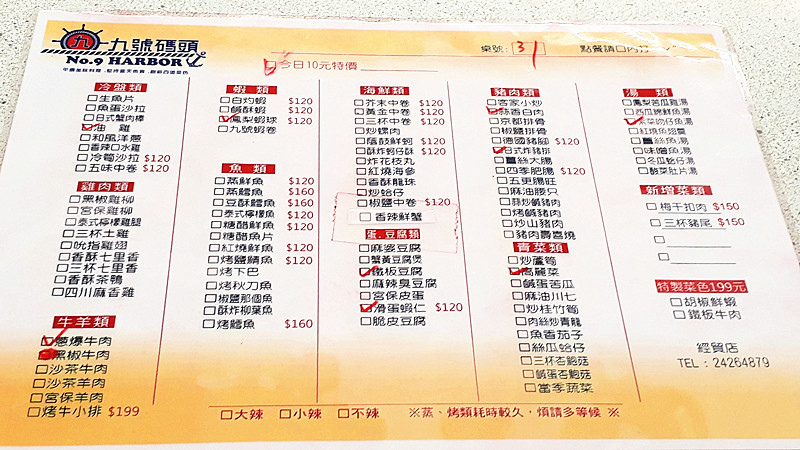 九號碼頭
No.9 HARBOR
桌號: 31
□今日10元特價
冷盤類
□生魚片
□魚蛋沙拉
□日式蟹肉棒
□油 雞
□和風洋蔥
□香辣口水雞
□冷筍沙拉 $120
□五味中卷 $120
雞肉類
□黑椒雞柳
□宮保雞柳
□泰式檸檬雞腿
□三杯土雞
□吮指雞翅
□香酥七里香
□三杯七里香
□香酥茶鴨
□四川麻香雞
牛羊類
□蔥爆牛肉
□黑椒牛肉
□沙茶牛肉
□沙茶羊肉
□宮保羊肉
□烤牛小排 $199
蝦 類
□白灼蝦 $120
□鹹酥蝦 $120
□鳳梨蝦球 $120
□九號蝦卷
魚 類
□蒸鮮魚 $120
□蒸鱈魚 $160
□豆酥鱈魚 $160
□泰式檸檬魚 $120
□糖醋鮮魚 $120
□糖醋魚片
□紅燒鮮魚 $120
□烤鹽鯖魚 $120
□烤下巴
□烤秋刀魚
□椒鹽那個魚
□酥炸柳葉魚
□烤鱈魚 $160
海鮮類
□芥末中卷 $120
□黃金中卷 $120
□三杯中卷 $120
□炒螺肉
□蔭鼓鮮蚵 $120
□酥炸蚵仔酥 $120
□炸花枝丸
□紅燒海參
□香酥龍珠
□炒蛤仔
□椒鹽中卷 $120
□香辣鮮蟹
蛋.豆腐類
□麻婆豆腐
□蟹黃豆腐煲
□鐵板豆腐
□麻辣臭豆腐
□宮保皮蛋
□滑蛋蝦仁 $120
□脆皮豆腐
豬肉類
□客家小炒
□蒜香白肉
□京都排骨
□椒鹽排骨
□德國豬腳 $120
□日式炸豬排
□薑絲大腸
□四季肥腸 $120
□五更腸旺
□麻油腰只
□蒜炒鹹豬肉
□烤鹹豬肉
□炒山豬肉
□豬肉壽喜燒
青菜類
□炒蘆筍
□高麗菜
□鹹蛋苦瓜
□麻油川七
□炒桂竹筍
□肉絲炒青龍
□魚香茄子
□絲瓜蛤仔
□三杯杏鮑菇
□鹹蛋杏鮑菇
□當季蔬菜
湯 類
□鳳梨苦瓜雞湯
□西瓜綿鮮魚湯
□紫菜吻仔魚湯
□紅燒魚翅羹
□薑絲魚湯
□味噌魚湯
□冬瓜蛤仔湯
□酸菜肚片湯
新增菜類
□梅干扣肉 $150
□三杯豬尾 $150
□
□
特製菜色199元
□胡椒鮮蝦
□鐵板牛肉
經貿店
TEL：24264879
□大辣 □小辣 □不辣 ※蒸、烤類耗時較久，煩請多等候 ※